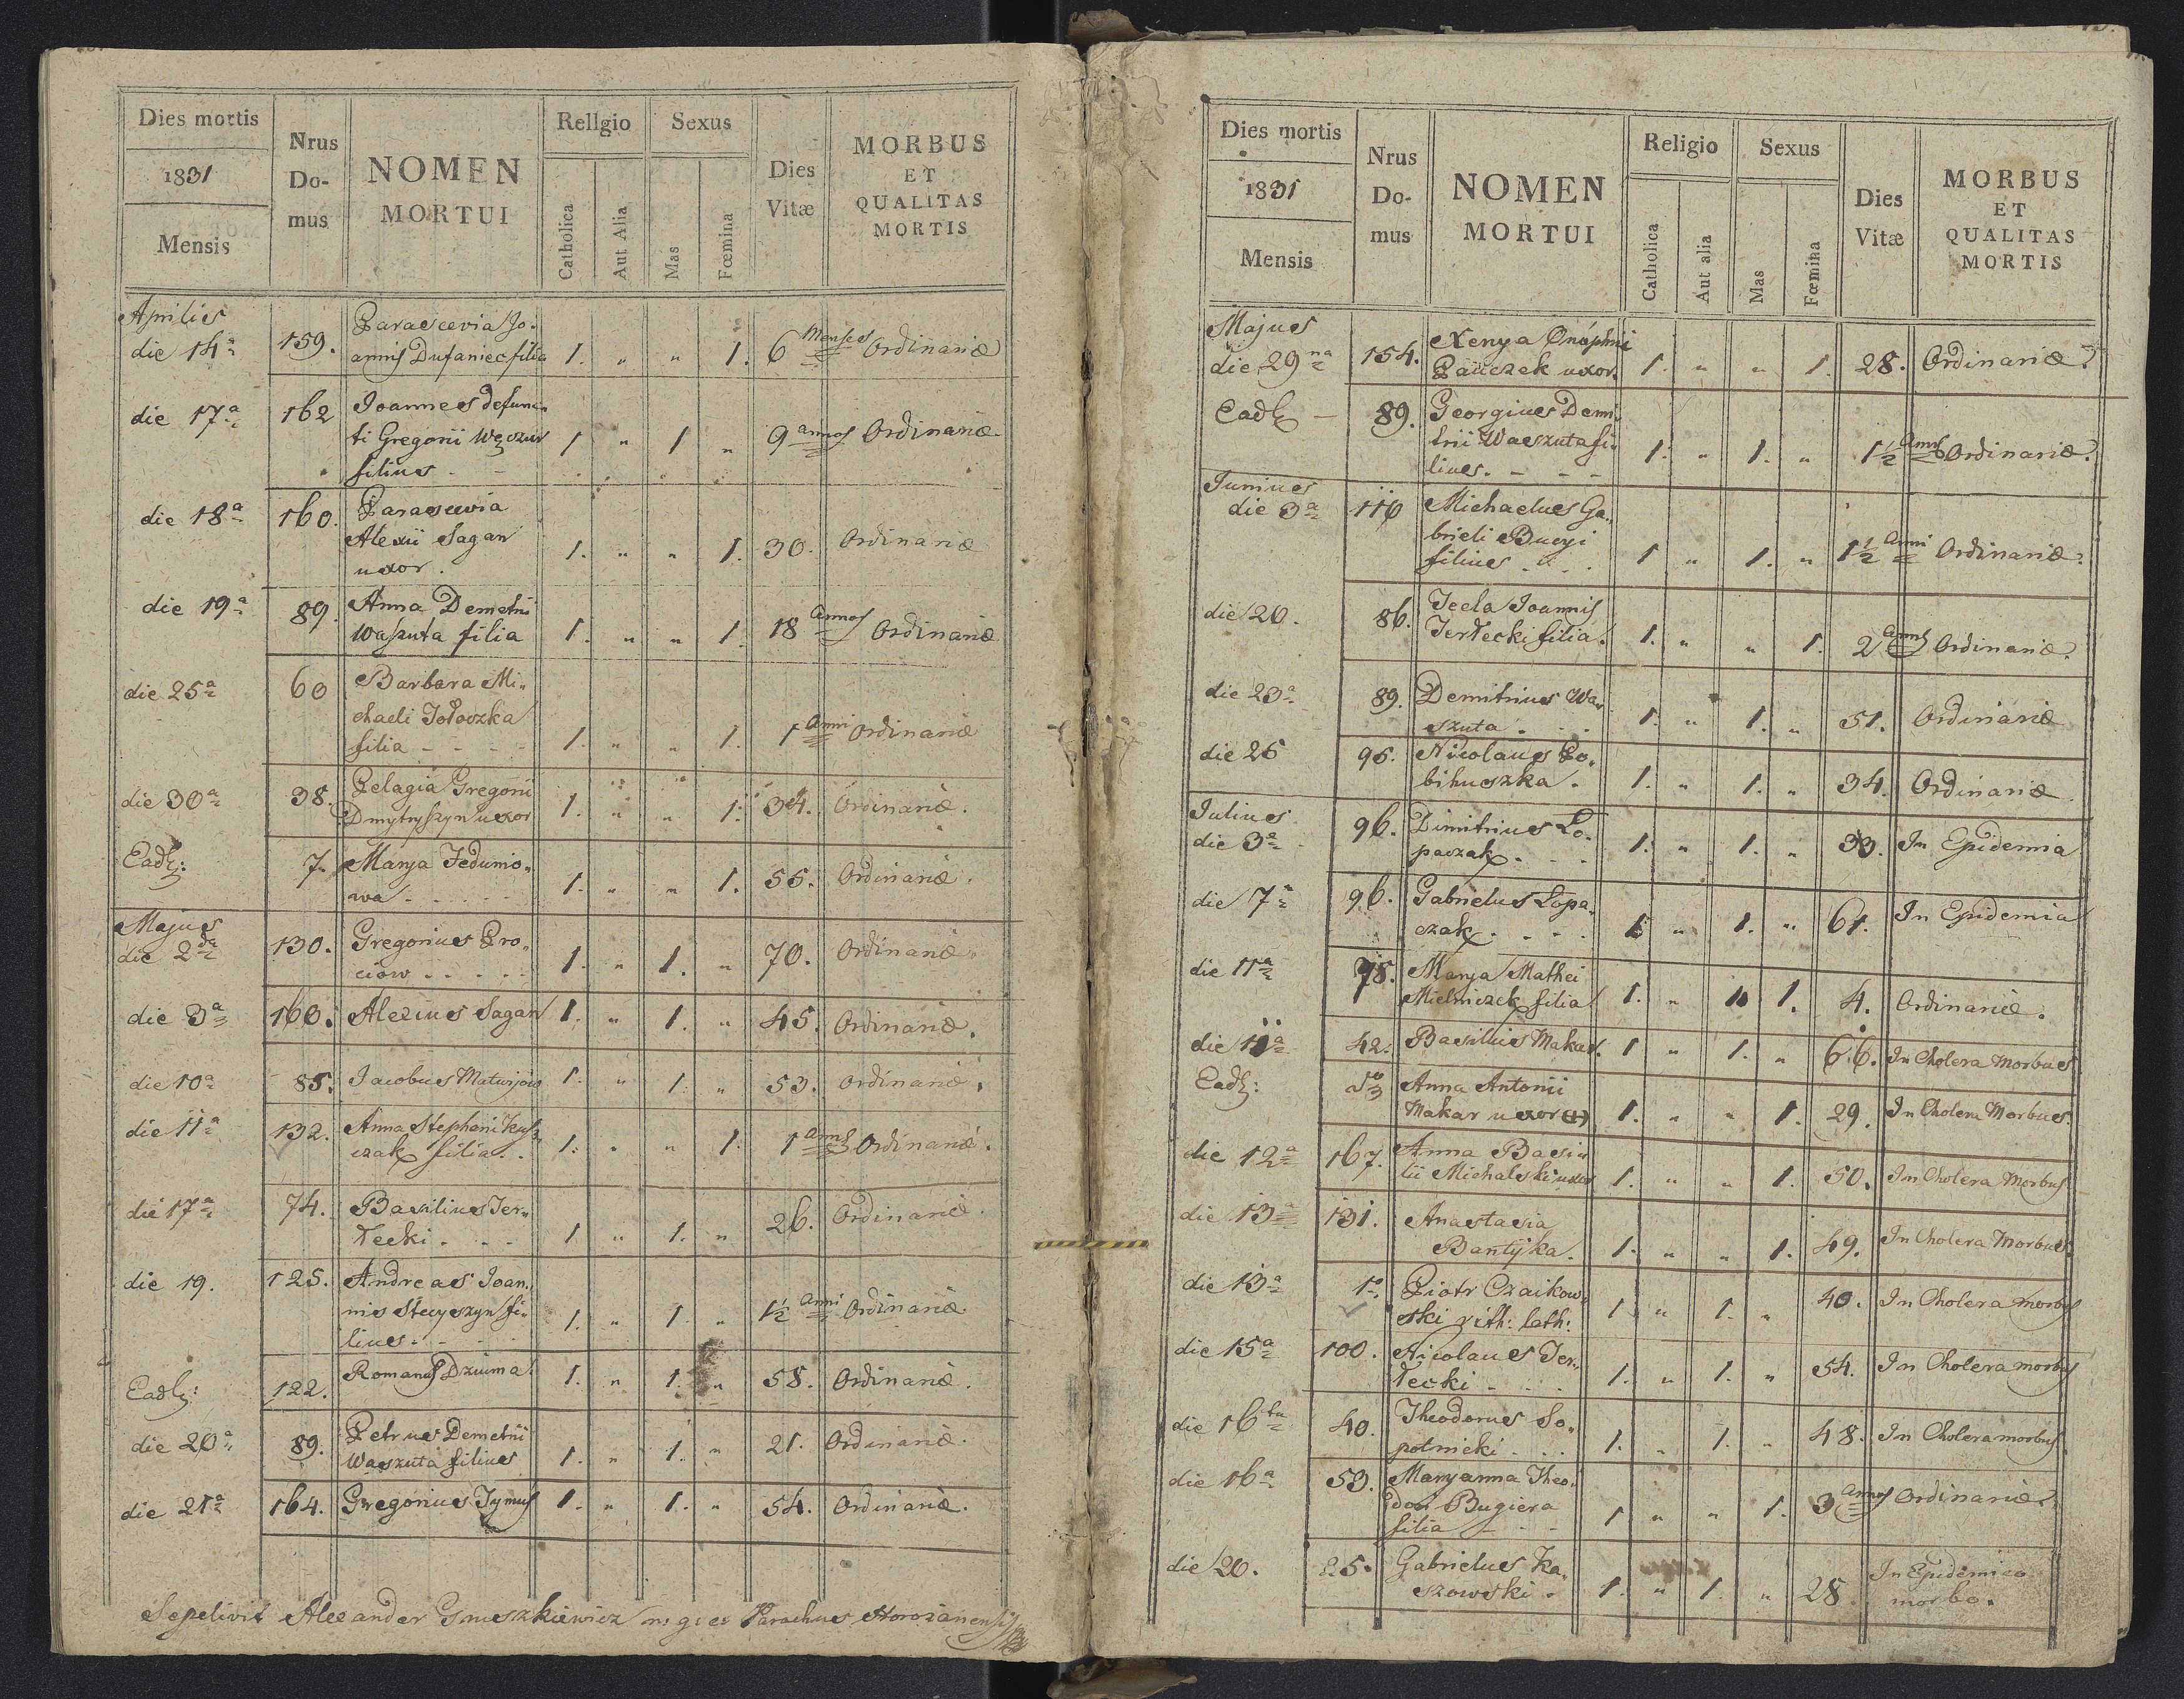 Dies mortis
1831
Mensis
Nrus
Do-
mus
NOMEN
MORTUI
Religio
Catholica
Aut Alia
Sexus
Mas
Fœmina
Dies
Vitæ
MORBUS
ET
QUALITAS
MORTIS
Aprilies
die 14ª 159. Parascevia Jo-
annis Dufaniec filia 1. " " 1. 6 Menses Ordinariæ
die 17ª 162 Joannes defunc-
ti Gregorii Węczur 1 " 1 " 9 annos Ordinariæ
filius . -
die 18ª 160. Parascevia
Alexii Sagan 1. " " 1. 30. Ordinariæ
uxor .
die 19ª 89. Anna Demetrii
Waszuta filia 1. " " 1 18 Annos Ordinariæ
die 25ª 60 Barbara Mi-
chaeli Jołoszka
filia - - - - 1. " " 1. 1 Anni Ordinariæ
die 30ª 38. Pelagia Gregorii
Dmytryszyn uxor 1. " " 1. 34. Ordinariæ.
Eadh: 7. Marya Fedunio-
wa . . . . . 1. " " 1. 55. Ordinariæ.
Majus
die 2da 130. Gregorius Pro-
ciów . . . . . 1. " 1. " 70. Ordinariæ.
die 3ª 160. Alexius Sagan 1. " 1. " 45. Ordinariæ.
die 10ª 85. Jacobus Matwijów 1. " 1. " 53. Ordinariæ.
die 11ª 132. Anna Stephani
czak filia . . 1. " " 1. 1 Ordinariæ.
die 17ª 74. Basilius Jer-
łecki . . - 1 " 1. " 26. Ordinariæ.
die 19. 125. Andreas Joan-
nis Stecyszyn fi-
lius . - - - 1. " 1. " 1½ Anni Ordinariæ
Eadh: 122. Romanus Dziuma. 1. " 1. " 58. Ordinariæ.
die 20ª 89. Petrus Demetrii
Waszuta filius 1. " 1. " 21. Ordinariæ.
die 21ª 164. Gregorius Tymus 1. " 1. " 54. Ordinariæ.
Sepelivit Alexander Gmeszkiewicz Parochus Horożanensis
Dies mortis
1831
Mensis
Nrus
Do-
mus
NOMEN
MORTUI
Religio
Catholica
Aut alia
Sexus
Mas
Fœmina
Dies
Vitæ
MORBUS
ET
QUALITAS
MORTIS
Majus
die 29na 154. Xenya Onóphrii
Pańczek uxor. 1. " " 1. 28. Ordinariæ.
Eadh - 89. Georgius Demi-
trii Waszuta fi-
lius. - - - 1. " 1. " 1½ Ordinariæ.
Junius
die 3ª 110 Michaelus Ga-
brieli Bucyi
filius . . . 1 " 1. " 1½ Anni Ordinariæ.
die 20. 86. Tecla Joannis
Jerłecki filia. 1. " " 1. 2 Ordinariæ.
die 23ª 89. Demitrius Wa-
szuta . . . 1. " 1. " 51. Ordinariæ
die 25 95. Nicolaus Po-
bihuszka . 1. " 1. " 34. Ordinariæ.
Julius
die 3ª 96. Dimitrius Ło-
paczak . . . 1. " 1. " 33. In Epidemia
die 7ª 96. Gabrielus Łopa-
czak . . . . 1. " 1. " 61. In Epidemia
die 11ª 78. Marya Mathei
Mielniczek filia 1. " 1. 4. Ordinariæ.
die 11ª 42. Basilius Makar. 1 " 1. " 66. In Cholera Morbus
Eadh: Anna Antonii
Makar uxor 1. " " 1. 29. In Cholera Morbus.
die 12ª 167. Anna Basi-
lii Michalski uxor 1. " " 1. 50. In Cholera Morbus
die 13ª 131. Anastasia
Bantyka. 1. " " 1. 49. In Cholera Morbus
die 13ª 1. Piotr Czaikow-
ski rith: lath: 1. " 1. " 40. In Cholera morbus
die 15ª 100. Nicolaus Jer-
łecki - . . . 1. " 1. " 54. In Cholera morbus
die 16ta 40. Theodorus So-
potnicki . . . 1. " 1. " 48. In Cholera morbus.
die 16ª 53. Maryanna Theo-
dori Bugiera
filia - - - 1 " " 1. 3 Annos Ordinariæ.
die 20. 25. Gabrielus Ka-
szowski . 1. " 1. " 28. In Epidemico
morbo.